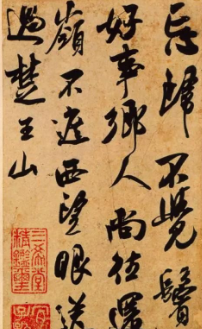 忘歸不覺鬢
好事鄉人尚往還
嶺不遮西望眼送
過楚王山
三希堂
精鑑璽